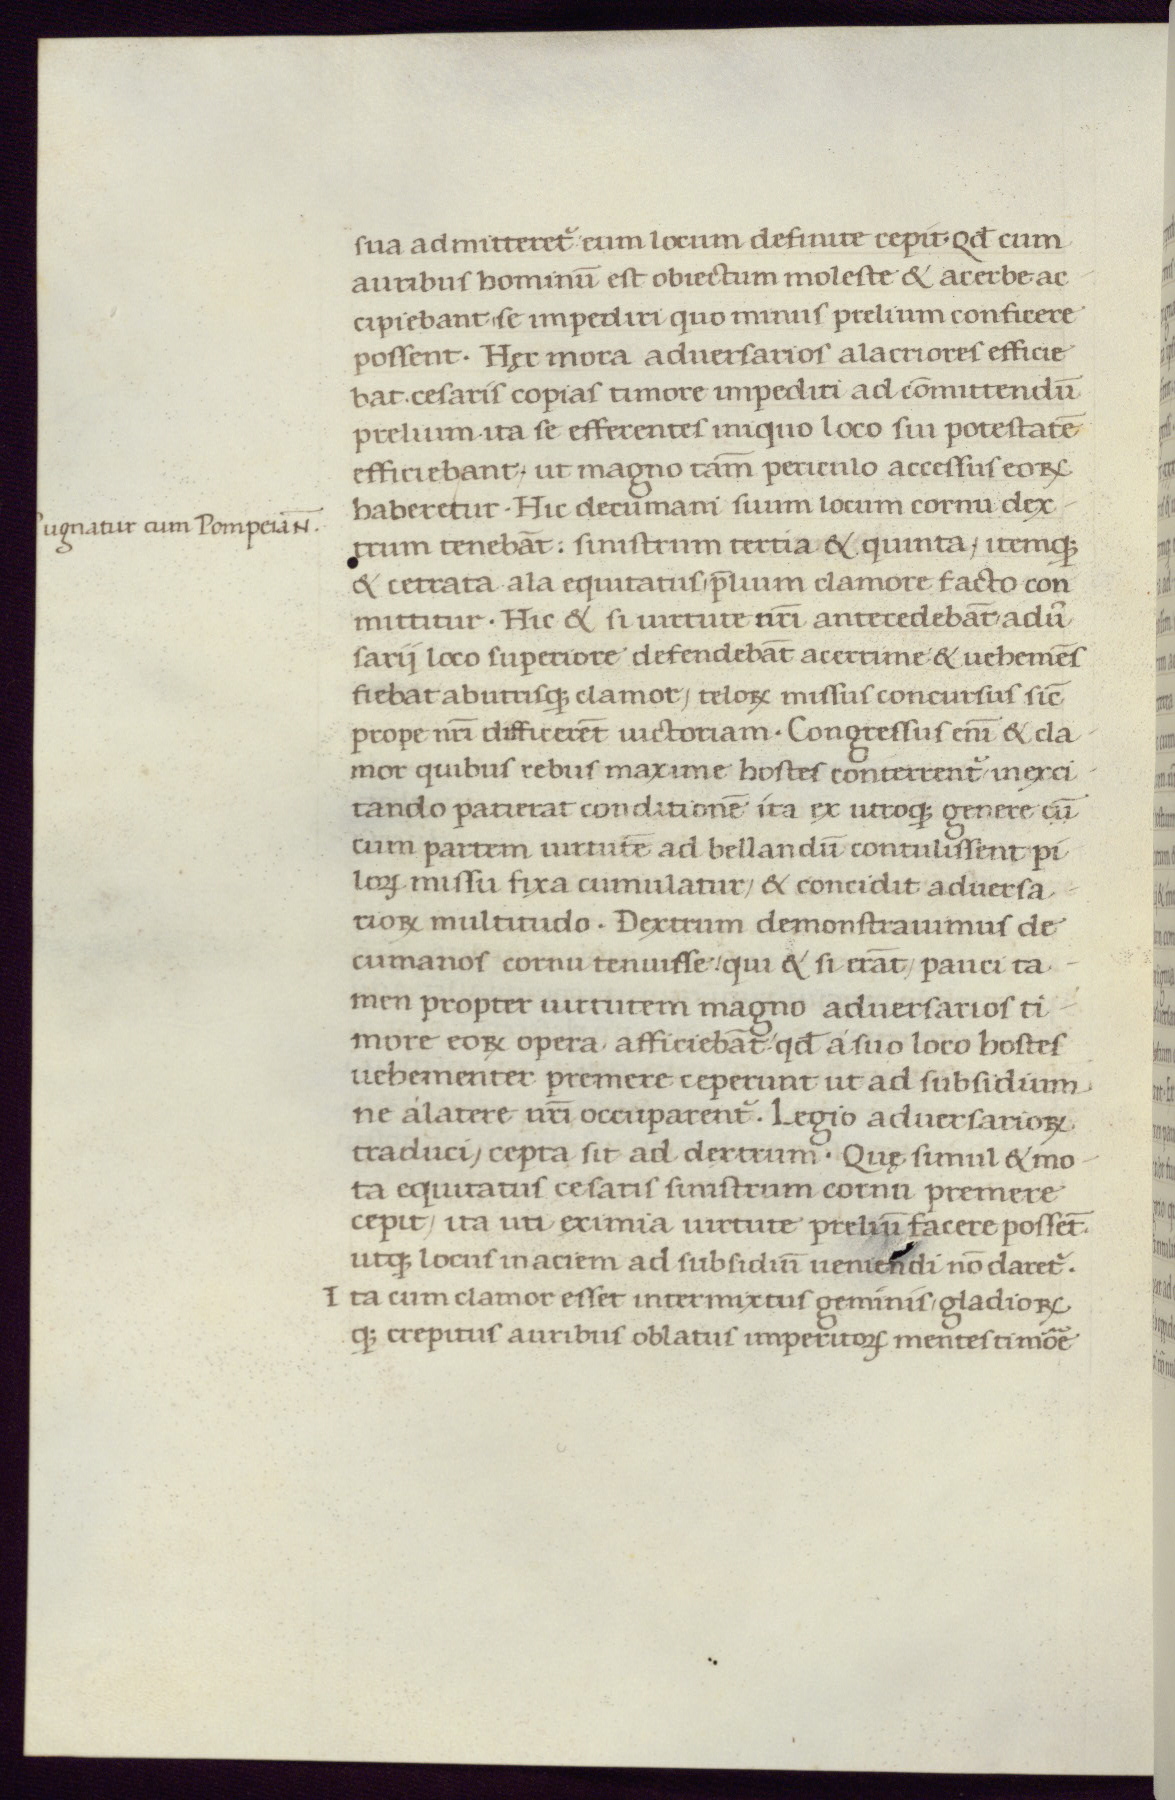 sua admitteret᷑ eum locum definite cepit. Qd̄ cum
auribus hominū est obiectum moleste & acerbe ac
cipiebant se impediri quo minus prelium conficere
possent. Hęc mora adversarios alacriores efficie
bat. cesaris copias timore impediri ad cōmittendū
prelium ita se efferentes iniquo loco sui potestatē
efficiebant, ut magno tam̄ periculo accessus eoꝝ
haberetur. Hic decumani suum locum cornu dex
Pugnatur cum Pompeian̄.
trum tenebāt: sinistrum tertia & quinta, itemqꝫ
& cetrata ala equitatus, p̄lium clamore facto con
mittitur. Hic & si uirtute nr̄i antecedebāt adū
sarij loco superiore defendebāt acerrime & uehemēs
fiebat abutrisqꝫ clamor, teloꝝ missus concursus sic̄
prope nr̄i difficerēt uictoriam. Congressus em̄ & cla
mor quibus rebus maxime hostes conterrent᷑ in exci
tando patierat conditionē ita ex utroqꝫ genere cū
cum partem uirtutē ad bellandū contulissent pi
loꝝ missu fixa cumulatur, & concidit adversa
rioꝝ multitudo. Dextrum demonstrauimus de
cumanos cornu tenuisse: qui & si erāt, pauci ta
men propter uirtutem magno adversarios ti
more eoꝝ opera afficiebāt: qd̄ á suo loco hostes
uehementer premere ceperunt ut ad subsidium
ne álatere nr̄i occuparent᷑. Legio adversarioꝝ
traduci, cepta sit ad dextrum. Quę simul & mo
ta equitatus cesaris sinistrum cornu premere
cepit, ita uti eximia uirtute preliū facere possēt.
utqꝫ locus in aciem ad subsidiū ueniendi nō daret᷑.
Ita cum clamor esset intermixtus geminis, gladioꝝ
qꝫ crepitus auribus oblatus imperitoꝝ mentes timōē